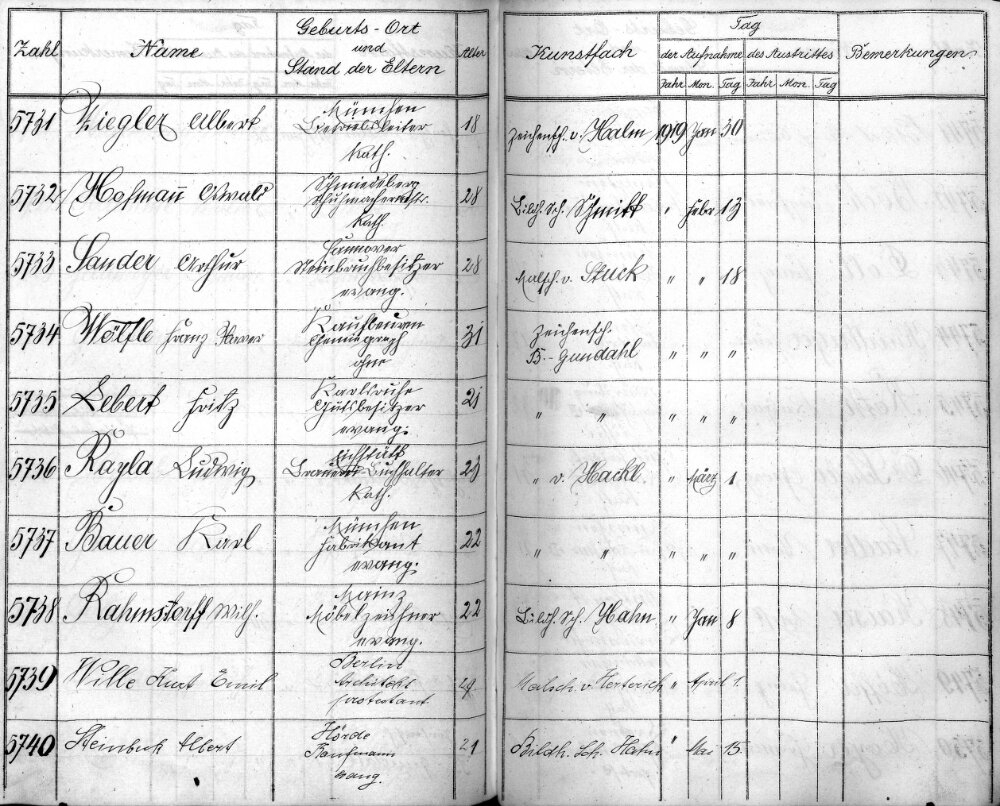 Zahl Name Geburts-Ort und Stand der Eltern Alter Kunstfach Tag der Aufnahme des Austrittes Bemerkungen
Jahr Mon. Tag Jahr Mon. Tag
5731 Ziegler Albert München 18 Zeichensch. v. Halm 1919 Jan 30
Betriebsleiter
Kath.
5732 Hofmann Oswald Schmiedeberg 28 Bildh. Sch. Schmitt " Febr 13
Kath.
5733 Sander Arthur Hannover 28 Malsch. v. Stuck " " 18
Steinbruchbesitzer
evang.
5734 Wölfle Franz Xaver Kaufbeuren 31 Zeichensch.
Chemigraph B.-Gundahl " " "
ohne
5735 Lebert Fritz Karlsruhe 21 " " " " "
Gutsbesitzer
evang.
5736 Rayla Ludwig Eichstätt 23 " v. Hackl " März 1
Brauerei Buchhalter
Kath.
5737 Bauer Karl München 22 " " " " "
Fabrikant
evang.
5738 Rahmstorff Wilh. Mainz 22 Bildh. Sch. Hahn " Jan 8
Möbelzeichner
evang.
5739 Wille Kurt Emil Berlin Malsch. v. Herterich " April 1.
Architekt
protestant
5740 Steinbeck Albert Hörde 21 Bildh. Sch. Hahn " Mai 15
Kaufmann
evang.